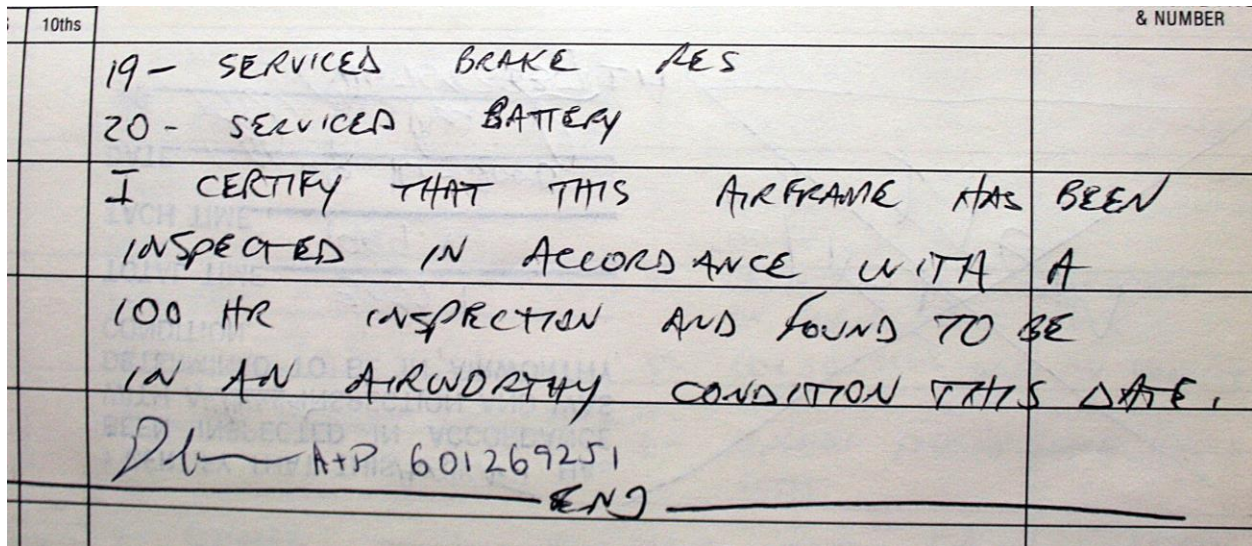 10ths & NUMBER
19- SERVICED BRAKE RES
20- SERVICED BATTERY
I CERTIFY THAT THIS AIRFRAME HAS BEEN
INSPECTED IN ACCORDANCE WITH A
100 HR INSPECTION AND FOUND TO BE
IN AN AIRWORTHY CONDITION THIS DATE.
A+P 601269251
END